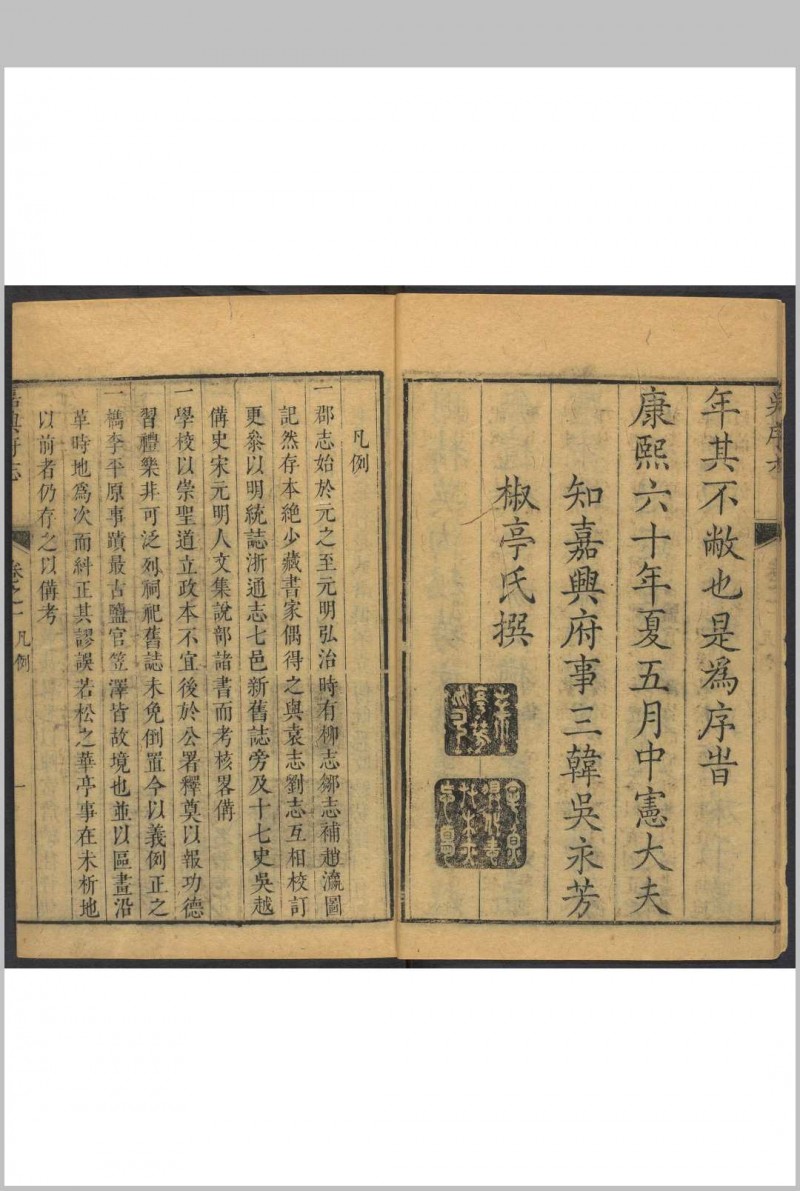 年其不敝也是爲序旹
康熙六十年夏五月中憲大夫
知嘉興府事三韓吳永芳
椒亭氏撰
凡例
一郡志始於元之至元明弘治時有柳志鄒志補趙瀛圖
記然存本絶少藏書家偶得之與袁志劉志互相校訂
更叅以明統誌浙通志七邑新舊誌旁及十七史吳越
備史宋元明人文集說部諸書而考核畧備
一學校以崇聖道立政本不宜後於公署釋奠以報功德
習禮樂非可泛列祠祀舊誌未免倒置今以義例正之
一檇李平原事蹟最古鹽官笠澤皆故境也並以區畫沿
革時地爲次而糾正其謬誤若松之華亭事在未析地
以前者仍存之以備考
嘉興府志
卷之一 凡例
一